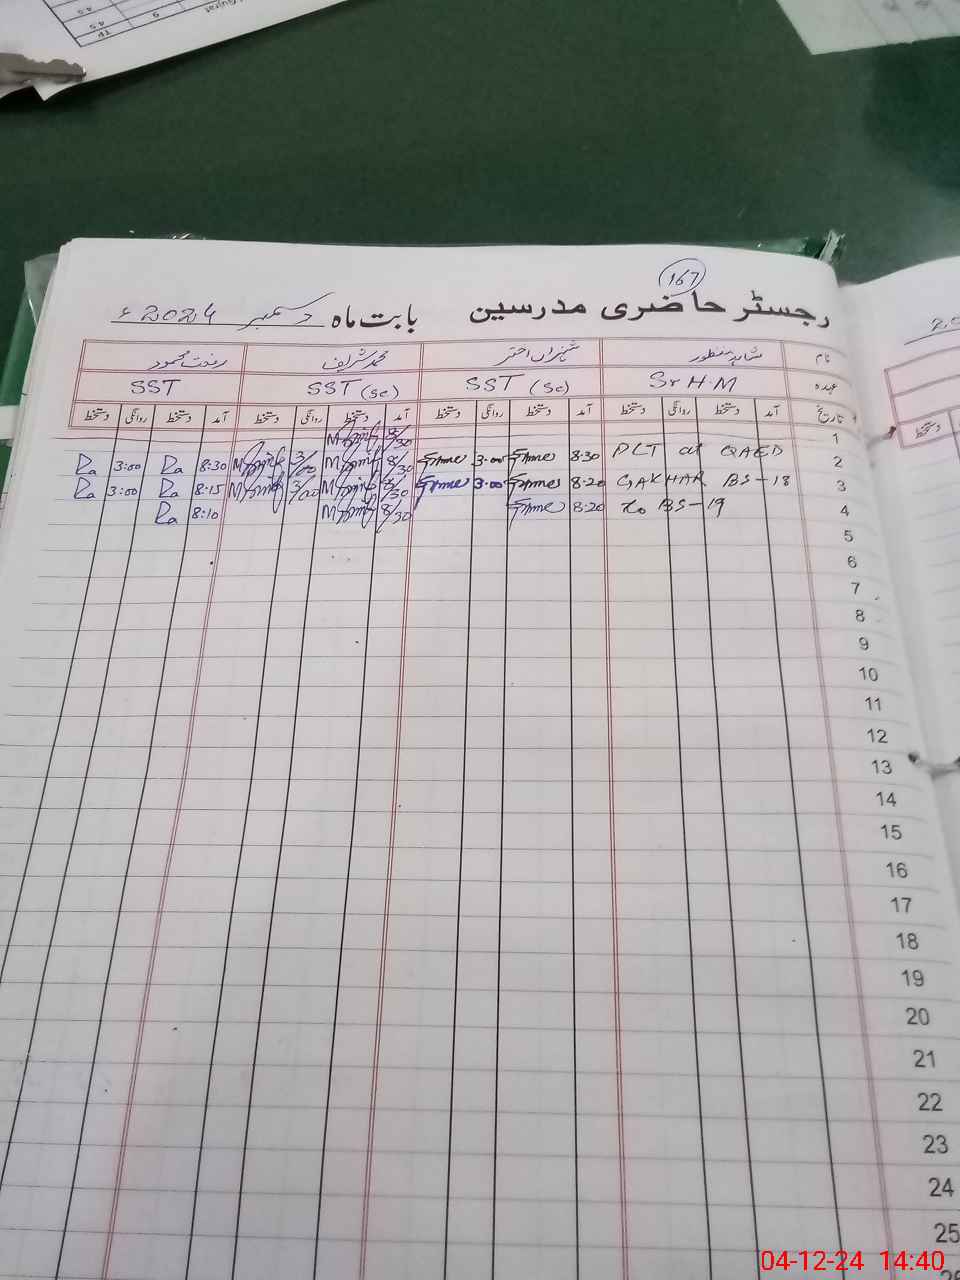 Gujrat
9
4.5
TP
4.5
167
رجسٹر حاضری مدرسین بابت ماہ دسمبر 2024ء
نام شاہد منظور شہزاں اختر محمد شریف رفعت محمود
عہدہ Sr H.M SST (Sc) SST (Sc) SST
تاریخ آمد دستخط روانگی دستخط آمد دستخط روانگی دستخط آمد دستخط روانگی دستخط آمد دستخط روانگی دستخط
1 8/30
2 PLT at QAED 8:30 3:00 8/30 3/00 8:30 Ra 3:00 Ra
3 GAKHAR BS-18 8:20 3:00 8/30 3/00 8:15 Ra 3:00 Ra
4 to BS-19 8:20 8/30 8:10 Ra
5
6
7
8
9
10
11
12
13
14
15
16
17
18
19
20
21
22
23
24
25
دستخط
04-12-24 14:40